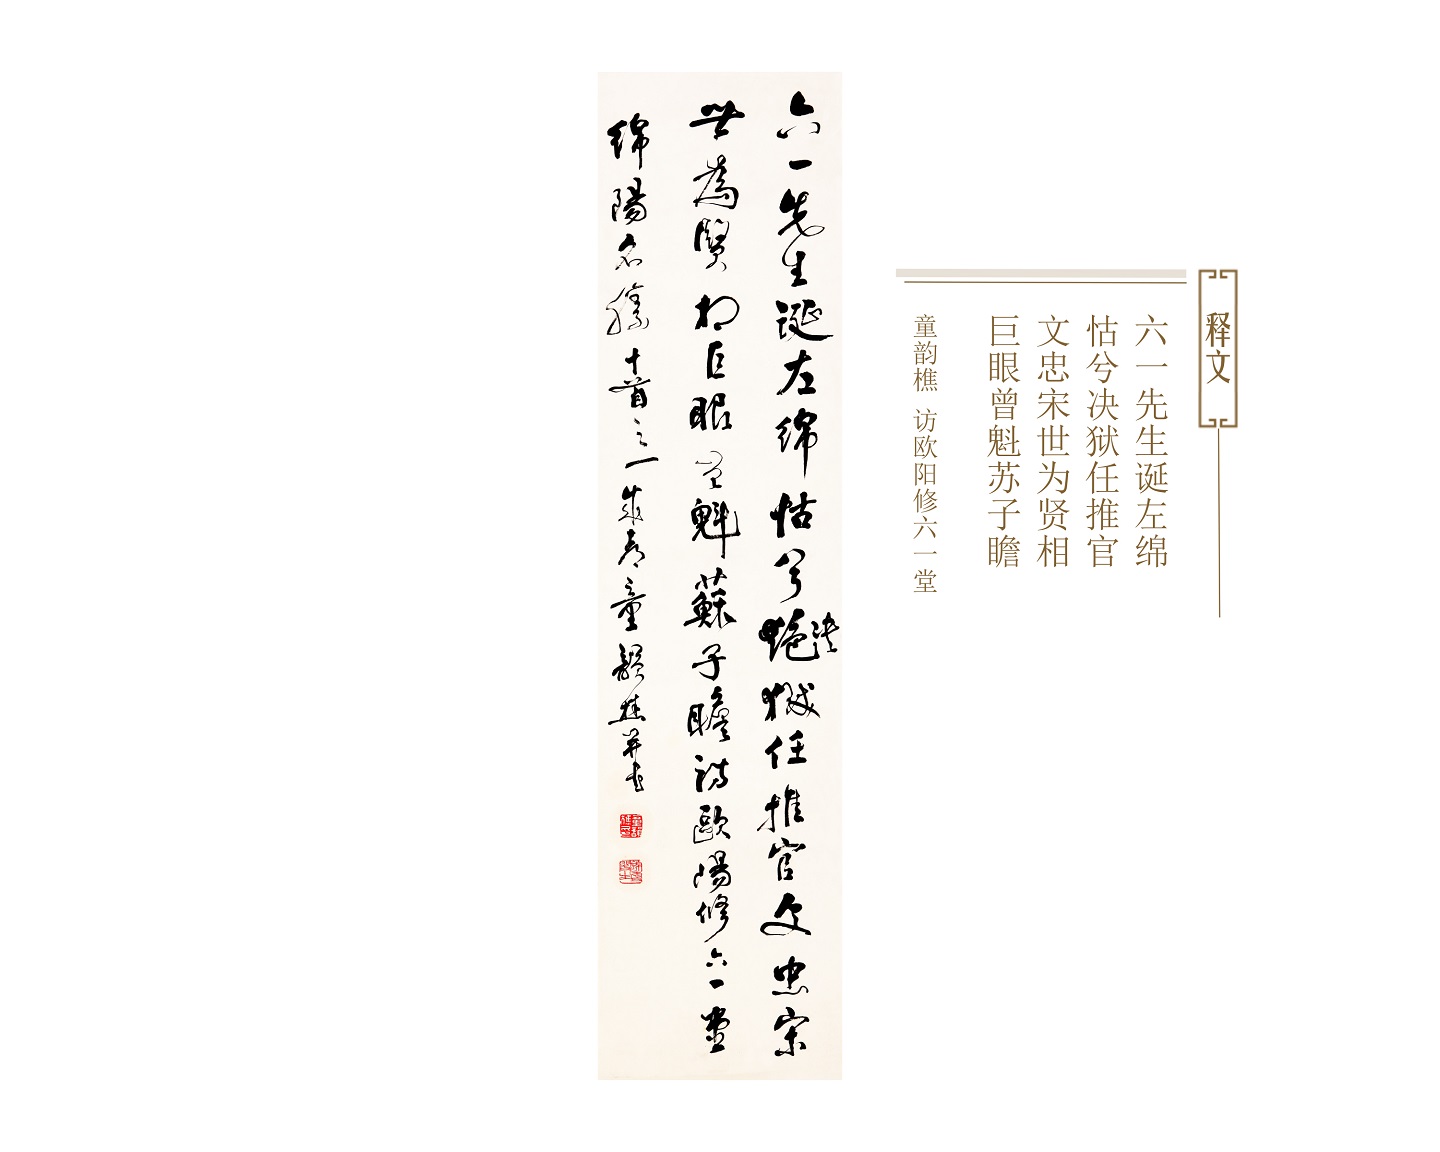 六一先生诞左绵怙兮艳决狱任推官文忠宋
世為賢相巨眼曾魁蘇子瞻訪歐陽修六一堂
綿陽名勝十首之一成都童韻樵並書
释文
六一先生诞左绵
怙兮决狱任推官
文忠宋世为贤相
巨眼曾魁苏子瞻
童韵樵 访欧阳修六一堂